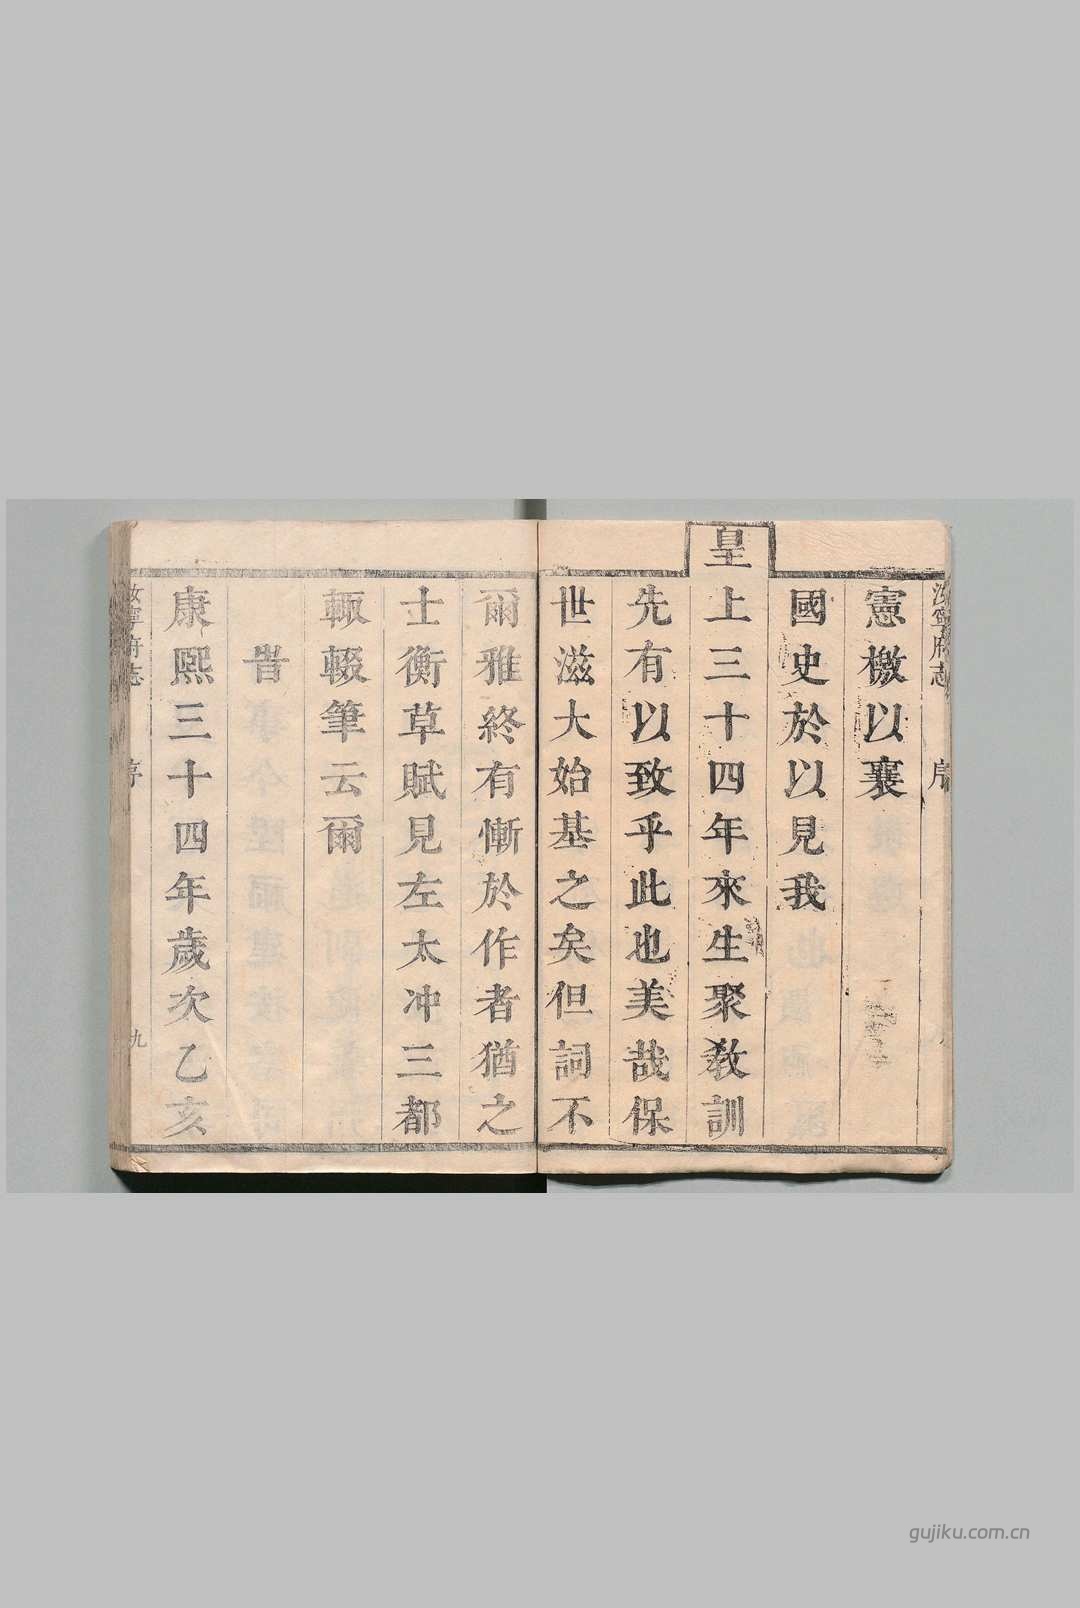 汝寧府志
序
憲檄以襄
國史於以見我
皇上三十四年來生聚教訓
先有以致乎此也美哉保
世滋大始基之矣但詞不
爾雅終有慚於作者猶之
士衡草賦見左太冲三都
輒輟筆云爾
旹
康熙三十四年歲次乙亥
汝寧府志
序
九
gujiku.com.cn